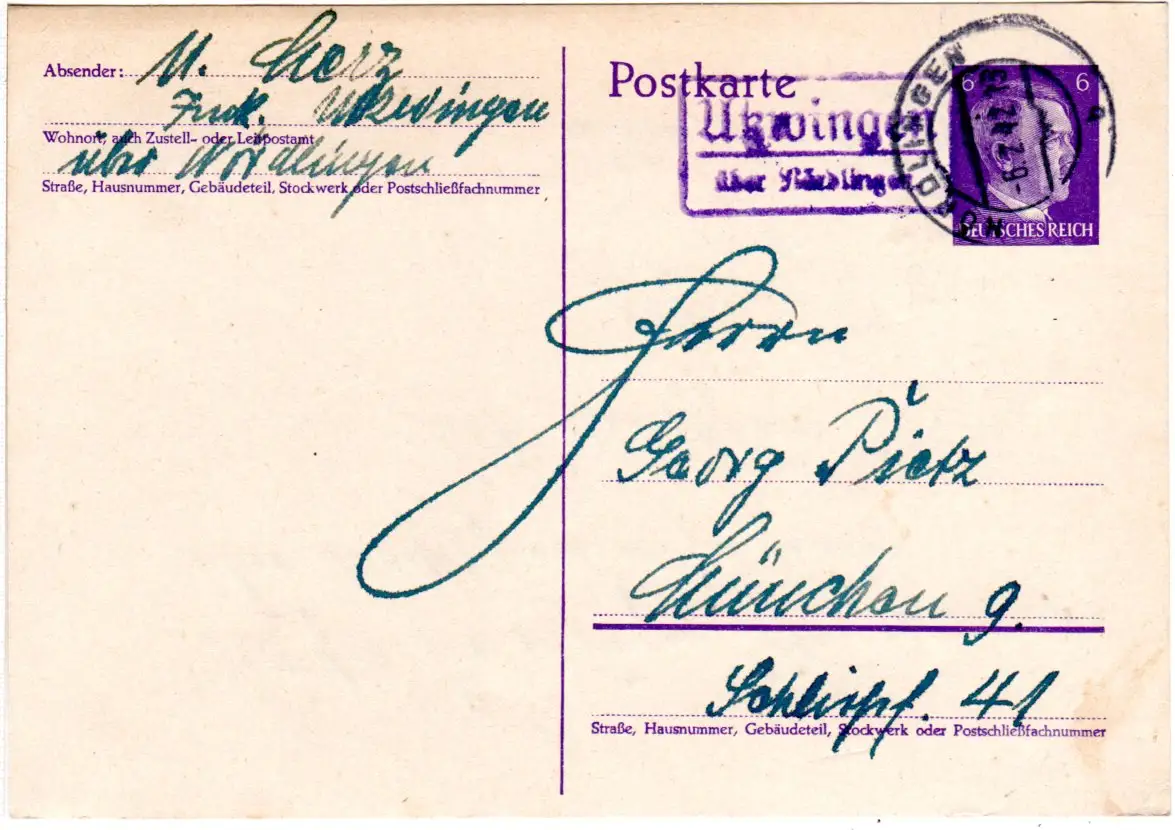 Absender: M. Herz
Utzwingen
Wohnort, auch Zustell- oder Leitpostamt
über Nördlingen
Straße, Hausnummer, Gebäudeteil, Stockwerk oder Postschließfachnummer
Postkarte
Utzwingen
über Nördlingen
NÖRDLINGEN
6 6
DEUTSCHES REICH
Herrn
Georg Pietz
München 9.
Schlierpf. 41
Straße, Hausnummer, Gebäudeteil, Stockwerk oder Postschließfachnummer